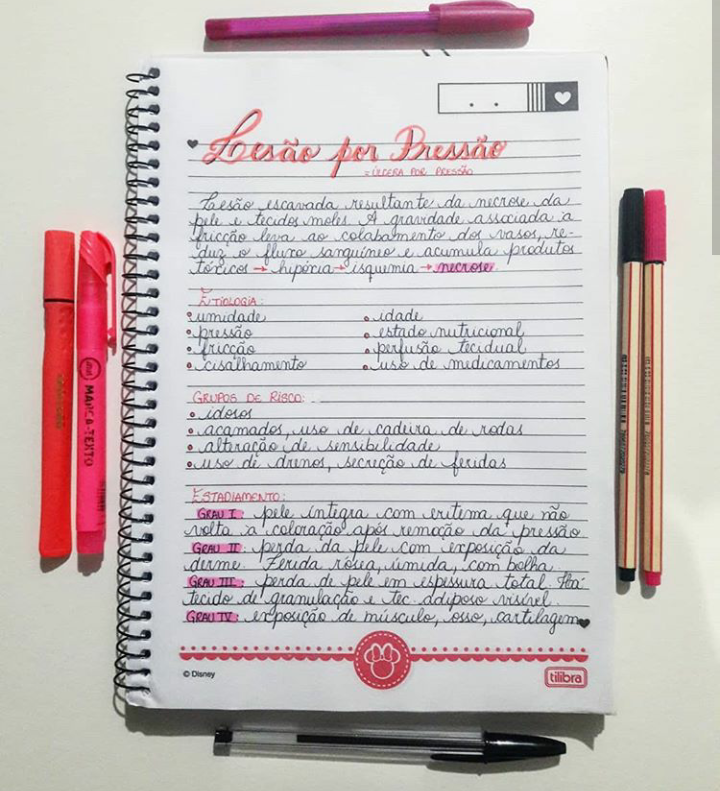 Lesão por Pressão
= ÚLCERA POR PRESSÃO
Lesão escavada resultante da necrose da
pele e tecidos moles A gravidade associada à
fricção leva ao colabamento dos vasos, re-
duz o fluxo sanguíneo e acumula produtos
tóxicos → hipóxia → isquemia → necrose.
ETIOLOGIA:
• umidade • idade
• pressão • estado nutricional
• fricção • perfusão tecidual
• cisalhamento • uso de medicamentos
GRUPOS DE RISCO:
• idosos
• acamados, uso de cadeira de rodas
• alteração de sensibilidade
• uso de drenos, secreção de feridas
ESTADIAMENTO:
GRAU I: pele íntegra com eritema que não
volta à coloração após remoção da pressão
GRAU II: perda da pele com exposição da
derme. Ferida rósea, úmida, com bolha.
GRAU III: perda de pele em espessura total. Há
tecido de granulação e tec. adiposo visível.
GRAU IV: exposição de músculo, osso, cartilagem
© Disney
tilibra
MARCA-TEXTO